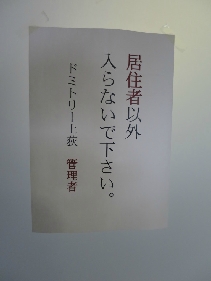 居住者以外
入らないで下さい。
ドミトリー上荻 管理者